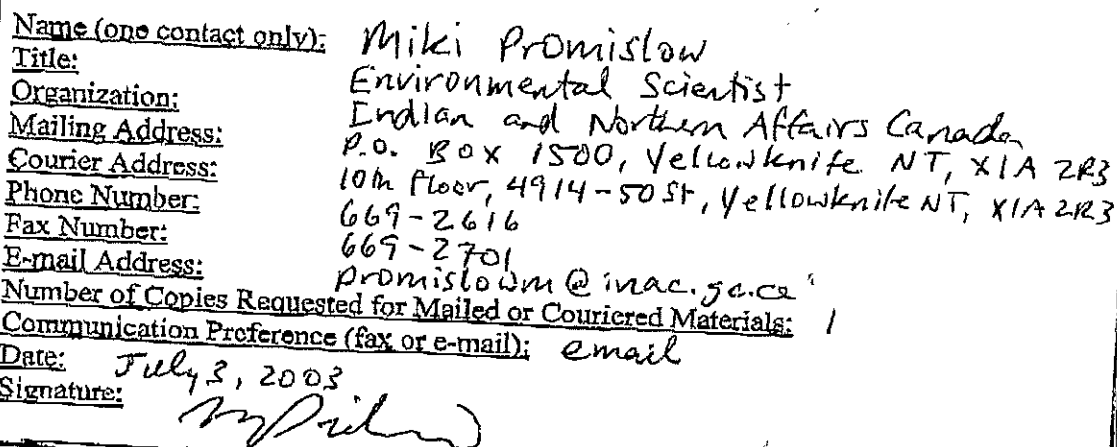 Name (one contact only): Miki Promislow
Title: Environmental Scientist
Organization: Indian and Northern Affairs Canada
Mailing Address: P.O. Box 1500, Yellowknife NT, X1A 2R3
Courier Address: 10th Floor, 4914-50 St, Yellowknife NT, X1A 2R3
Phone Number: 669-2616
Fax Number: 669-2701
E-mail Address: promislowm@inac.gc.ca
Number of Copies Requested for Mailed or Couriered Materials: 1
Communication Preference (fax or e-mail): email
Date: July 3, 2003
Signature: